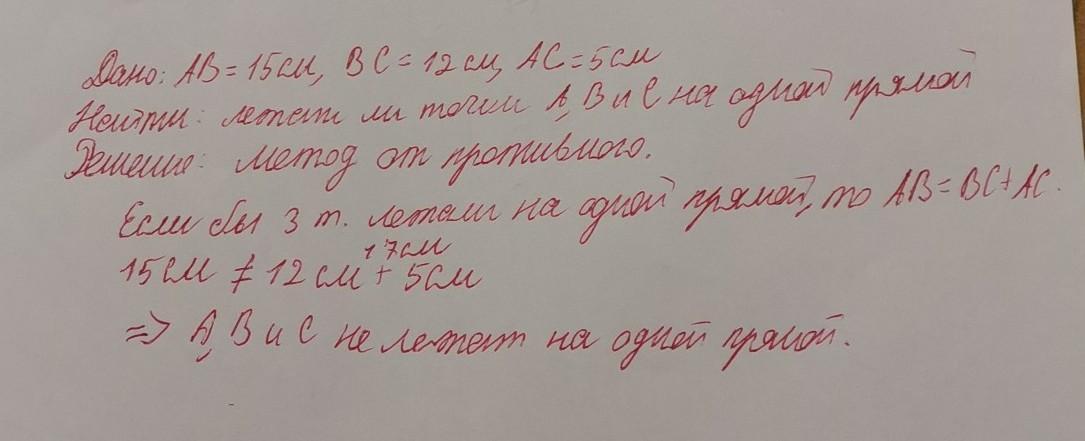 Дано: АВ = 15см, ВС = 12см, АС = 5см
Найти: лежат ли точки А, В и С на одной прямой
Решение: метод от противного.
Если бы 3 т. лежали на одной прямой, то АВ = ВС + АС.
17см
15см ≠ 12см + 5см
=> А, В и С не лежат на одной прямой.